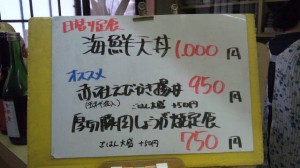 日替り定食
海鮮天丼 1,000円
オススメ
赤社えびかき揚丼 950円
ごはん大盛 +50円
厚切豚肉しょうが焼定食 750円
ごはん大盛 +50円